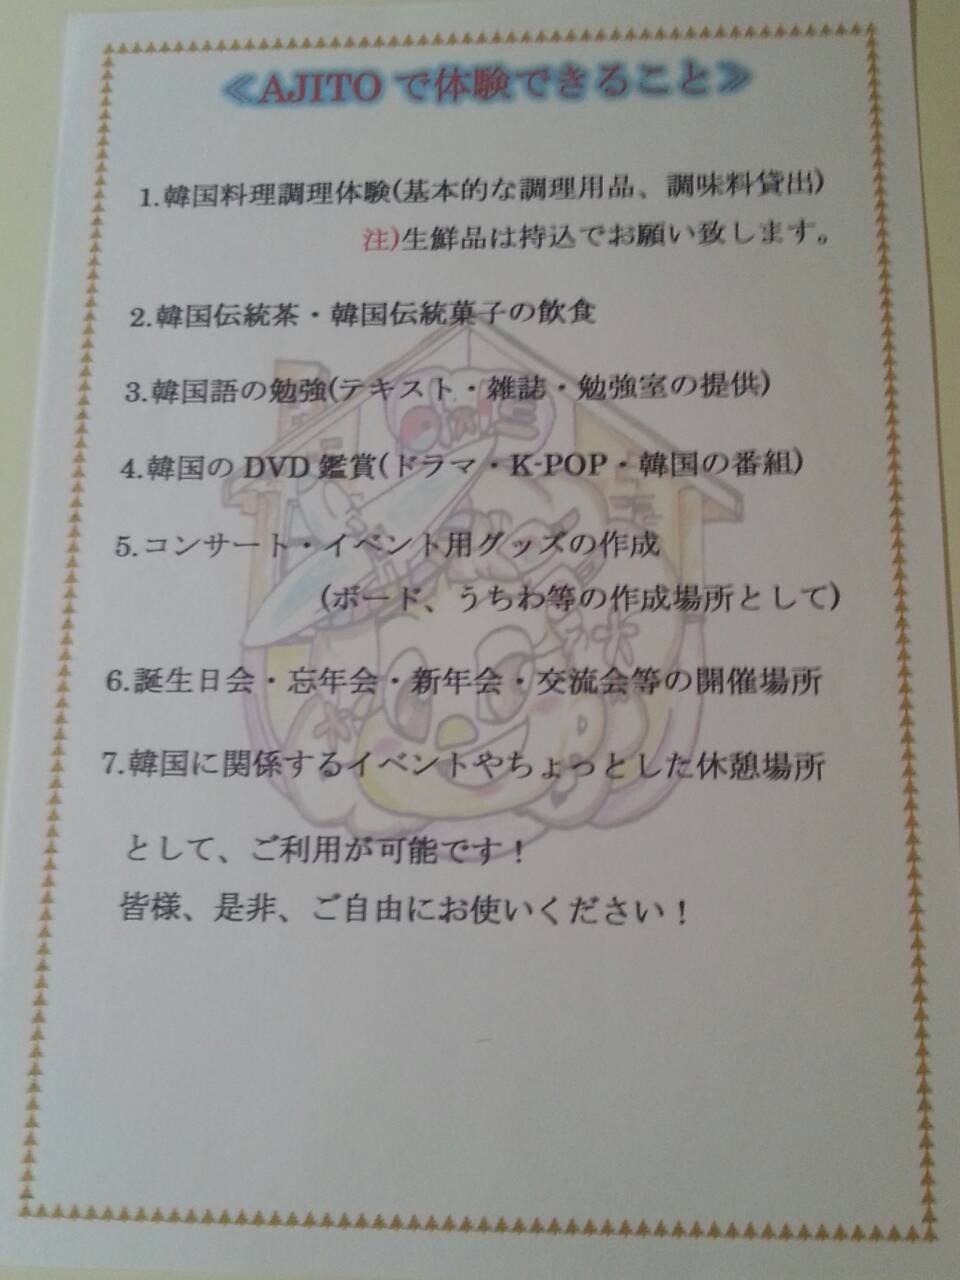 ≪AJITOで体験できること≫
1.韓国料理調理体験(基本的な調理用品、調味料貸出)
注)生鮮品は持込でお願い致します。
2.韓国伝統茶・韓国伝統菓子の飲食
3.韓国語の勉強(テキスト・雑誌・勉強室の提供)
4.韓国のDVD鑑賞(ドラマ・K-POP・韓国の番組)
5.コンサート・イベント用グッズの作成
(ボード、うちわ等の作成場所として)
6.誕生日会・忘年会・新年会・交流会等の開催場所
7.韓国に関係するイベントやちょっとした休憩場所
として、ご利用が可能です!
皆様、是非、ご自由にお使いください!